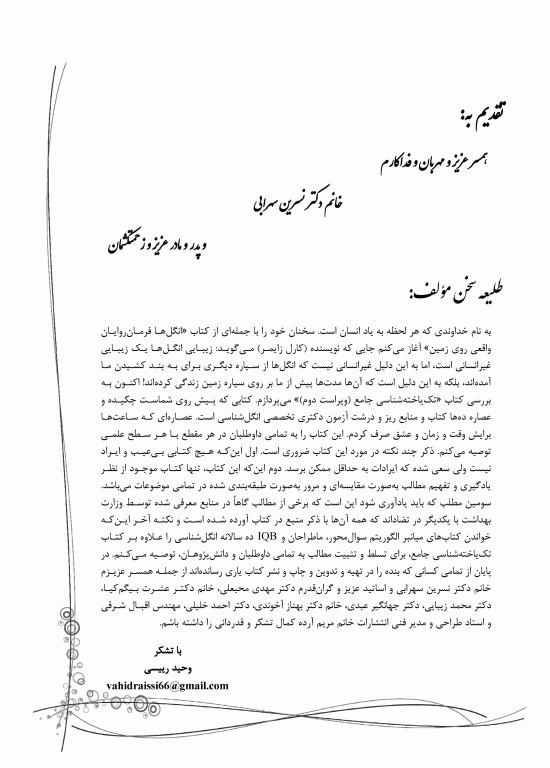 تقدیم به:
همسر عزیز و مهربان و فداکارم
خانم دکتر نسرین سهرابی
و پدر و مادر عزیز و زحمتکشمان
طلیعه سخن مؤلف:
به نام خداوندی که هر لحظه به یاد انسان است. سخنان خود را با جمله‌ای از کتاب «انگل‌ها فرمان‌روایان
واقعی روی زمین» آغاز می‌کنم جایی که نویسنده (کارل زایمر) می‌گوید: زیبایی انگل‌ها یک زیبایی
غیرانسانی است، اما به این دلیل غیرانسانی نیست که انگل‌ها از سیاره دیگری برای به بند کشیدن ما
آمده‌اند، بلکه به این دلیل است که آن‌ها مدت‌ها پیش از ما بر روی سیاره زمین زندگی کرده‌اند! اکنون به
بررسی کتاب «تک‌یاخته‌شناسی جامع (ویراست دوم)» می‌پردازم. کتابی که پیش روی شماست چکیده و
عصاره ده‌ها کتاب و منابع ریز و درشت آزمون دکتری تخصصی انگل‌شناسی است. عصاره‌ای که ساعت‌ها
برایش وقت و زمان و عشق صرف کردم. این کتاب را به تمامی داوطلبان در هر مقطع با هر سطح علمی
توصیه می‌کنم. ذکر چند نکته در مورد این کتاب ضروری است. اول این‌که هیچ کتابی بی‌عیب و ایراد
نیست ولی سعی شده که ایرادات به حداقل ممکن برسد. دوم این‌که این کتاب، تنها کتاب موجود از نظر
یادگیری و تفهیم مطالب به‌صورت مقایسه‌ای و مرور به‌صورت طبقه‌بندی شده در تمامی موضوعات می‌باشد.
سومین مطلب که باید یادآوری شود این است که برخی از مطالب گاهاً در منابع معرفی شده توسط وزارت
بهداشت با یکدیگر در تضاداند که همه آن‌ها با ذکر منبع در کتاب آورده شده است و نکته آخر این‌که
خواندن کتاب‌های میانبر الگوریتم سوال‌محور، ماطراحان و IQB ده سالانه انگل‌شناسی را علاوه بر کتاب
تک‌یاخته‌شناسی جامع، برای تسلط و تثبیت مطالب به تمامی داوطلبان و دانش‌پژوهان، توصیه می‌کنم. در
پایان از تمامی کسانی که بنده را در تهیه و تدوین و چاپ و نشر کتاب یاری رسانده‌اند از جمله همسر عزیزم
خانم دکتر نسرین سهرابی و اساتید عزیز و گران‌قدرم دکتر مهدی محبعلی، خانم دکتر عشرت بیگم‌کیا،
دکتر محمد زیبایی، دکتر جهانگیر عبدی، خانم دکتر بهناز آخوندی، دکتر احمد خلیلی، مهندس اقبال شرقی
و استاد طراحی و مدیر فنی انتشارات خانم مریم آرده کمال تشکر و قدردانی را داشته باشم.
با تشکر
وحید رییسی
vahidraissi66@gmail.com